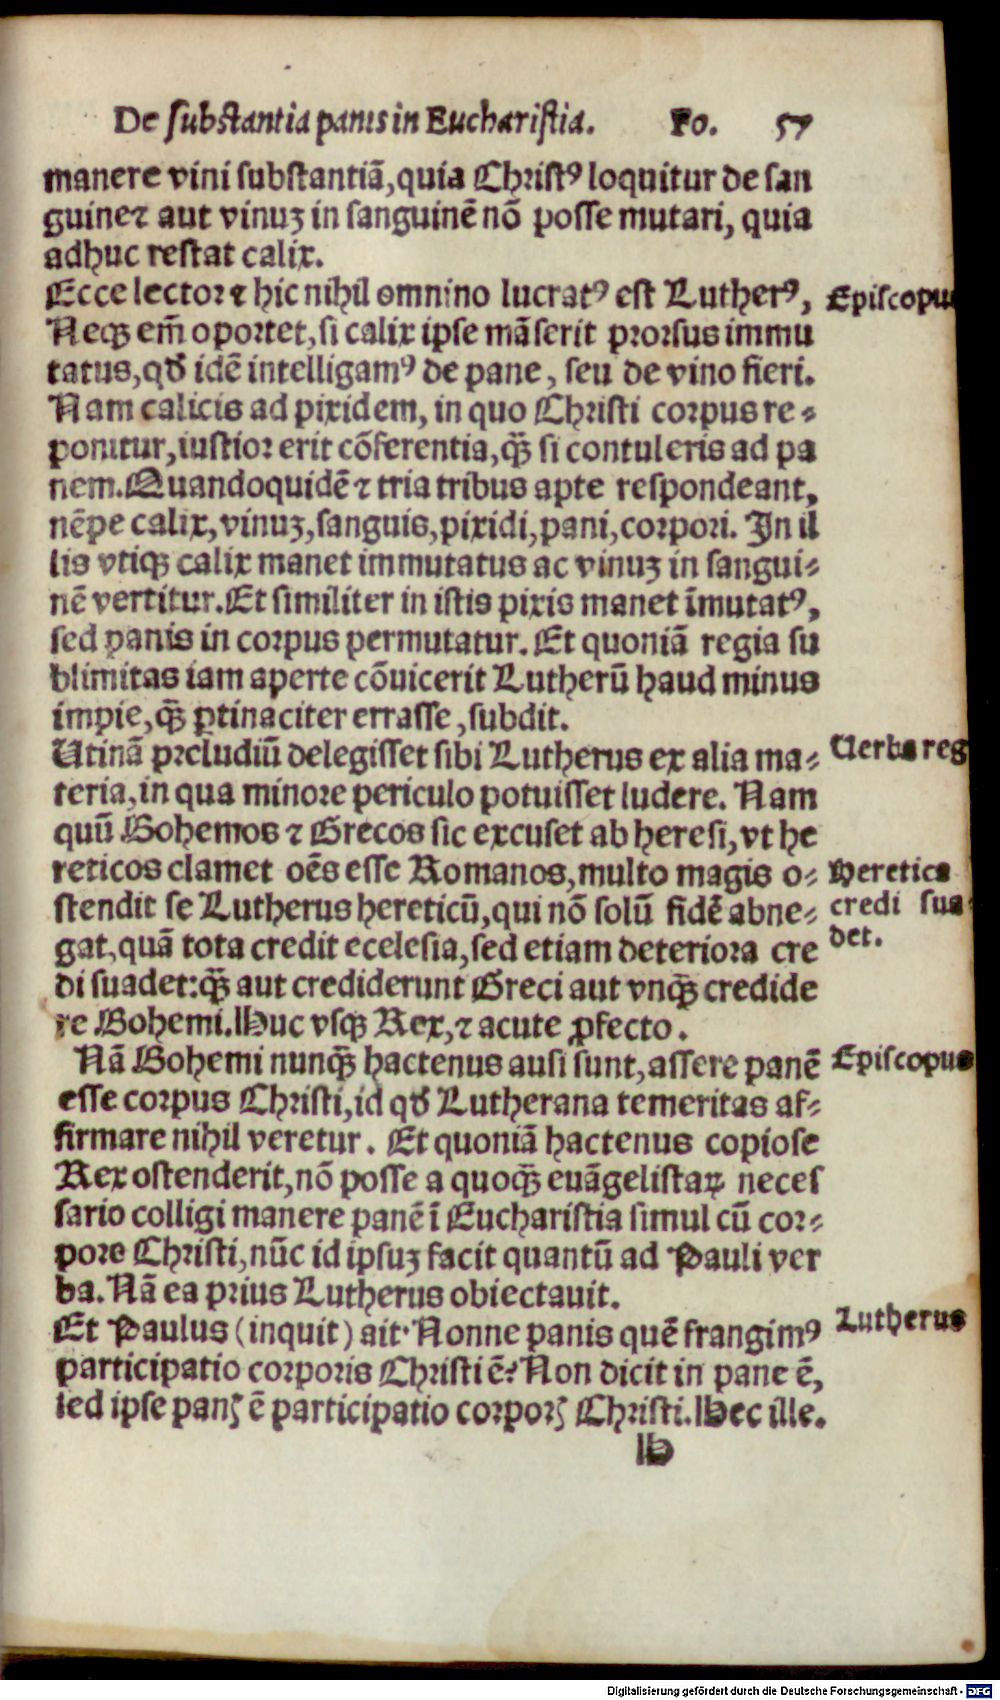 De substantia panis in Eucharistia. Fo. 57
manere vini substantiā, quia Christꝰ loquitur de san
guine⁊ aut vinuʒ in sanguinē nō posse mutari, quia
adhuc restat calix.
Ecce lector ⁊ hic nihil omnino lucratꝰ est Lutherꝰ,
Episcopu
Neqꝫ em̄ oportet, si calix ipse māserit prorsus immu
tatus, qď idē intelligamꝰ de pane, seu de vino fieri.
Nam calicis ad pixidem, in quo Christi corpus re⸗
ponitur, iustior erit cōferentia, q̄ꝫ si contuleris ad pa
nem. Quandoquidē ⁊ tria tribus apte respondeant,
nēpe calix, vinuʒ, sanguis, pixidi, pani, corpori. In il
lis vtiqꝫ calix manet immutatus ac vinuʒ in sangui⸗
nē vertitur. Et similiter in istis pixis manet īmutatꝰ,
sed panis in corpus permutatur. Et quoniā regia su
blimitas iam aperte cōuicerit Lutherū haud minus
impie, q̄ꝫ ꝑtinaciter errasse, subdit.
Utinā preludiū delegisset sibi Lutherus ex alia ma⸗
Uerba reg
teria, in qua minore periculo potuisset ludere. Nam
quū Bohemos ⁊ Grecos sic excuset ab heresi, vt he
reticos clamet oēs esse Romanos, multo magis o⸗
Heretica
stendit se Lutherus hereticū, qui nō solū fidē abne⸗
credi sua⸗
gat, quā tota credit ecclesia, sed etiam deteriora cre
det.
di suadet: q̄ꝫ aut crediderunt Greci aut vnq̄ꝫ credide
re Bohemi. Huc vsqꝫ Rex, ⁊ acute ꝓfecto.
Nā Bohemi nunq̄ꝫ hactenus ausi sunt, assere panē
Episcopus
esse corpus Christi, id qď Lutherana temeritas af⸗
firmare nihil veretur. Et quoniā hactenus copiose
Rex ostenderit, nō posse a quoq̄ꝫ euāgelistaꝝ neces
sario colligi manere panē ī Eucharistia simul cū cor⸗
pore Christi, nūc id ipsuʒ facit quantū ad Pauli ver
ba. Nā ea prius Lutherus obiectauit.
Et Paulus (inquit) ait. Nonne panis quē frangimꝰ
Lutherus
participatio corporis Christi ē? Non dicit in pane ē,
sed ipse panꝭ ē participatio corporꝭ Christi. Hec ille.
H
Digitalisierung gefördert durch die Deutsche Forschungsgemeinschaft - DFG